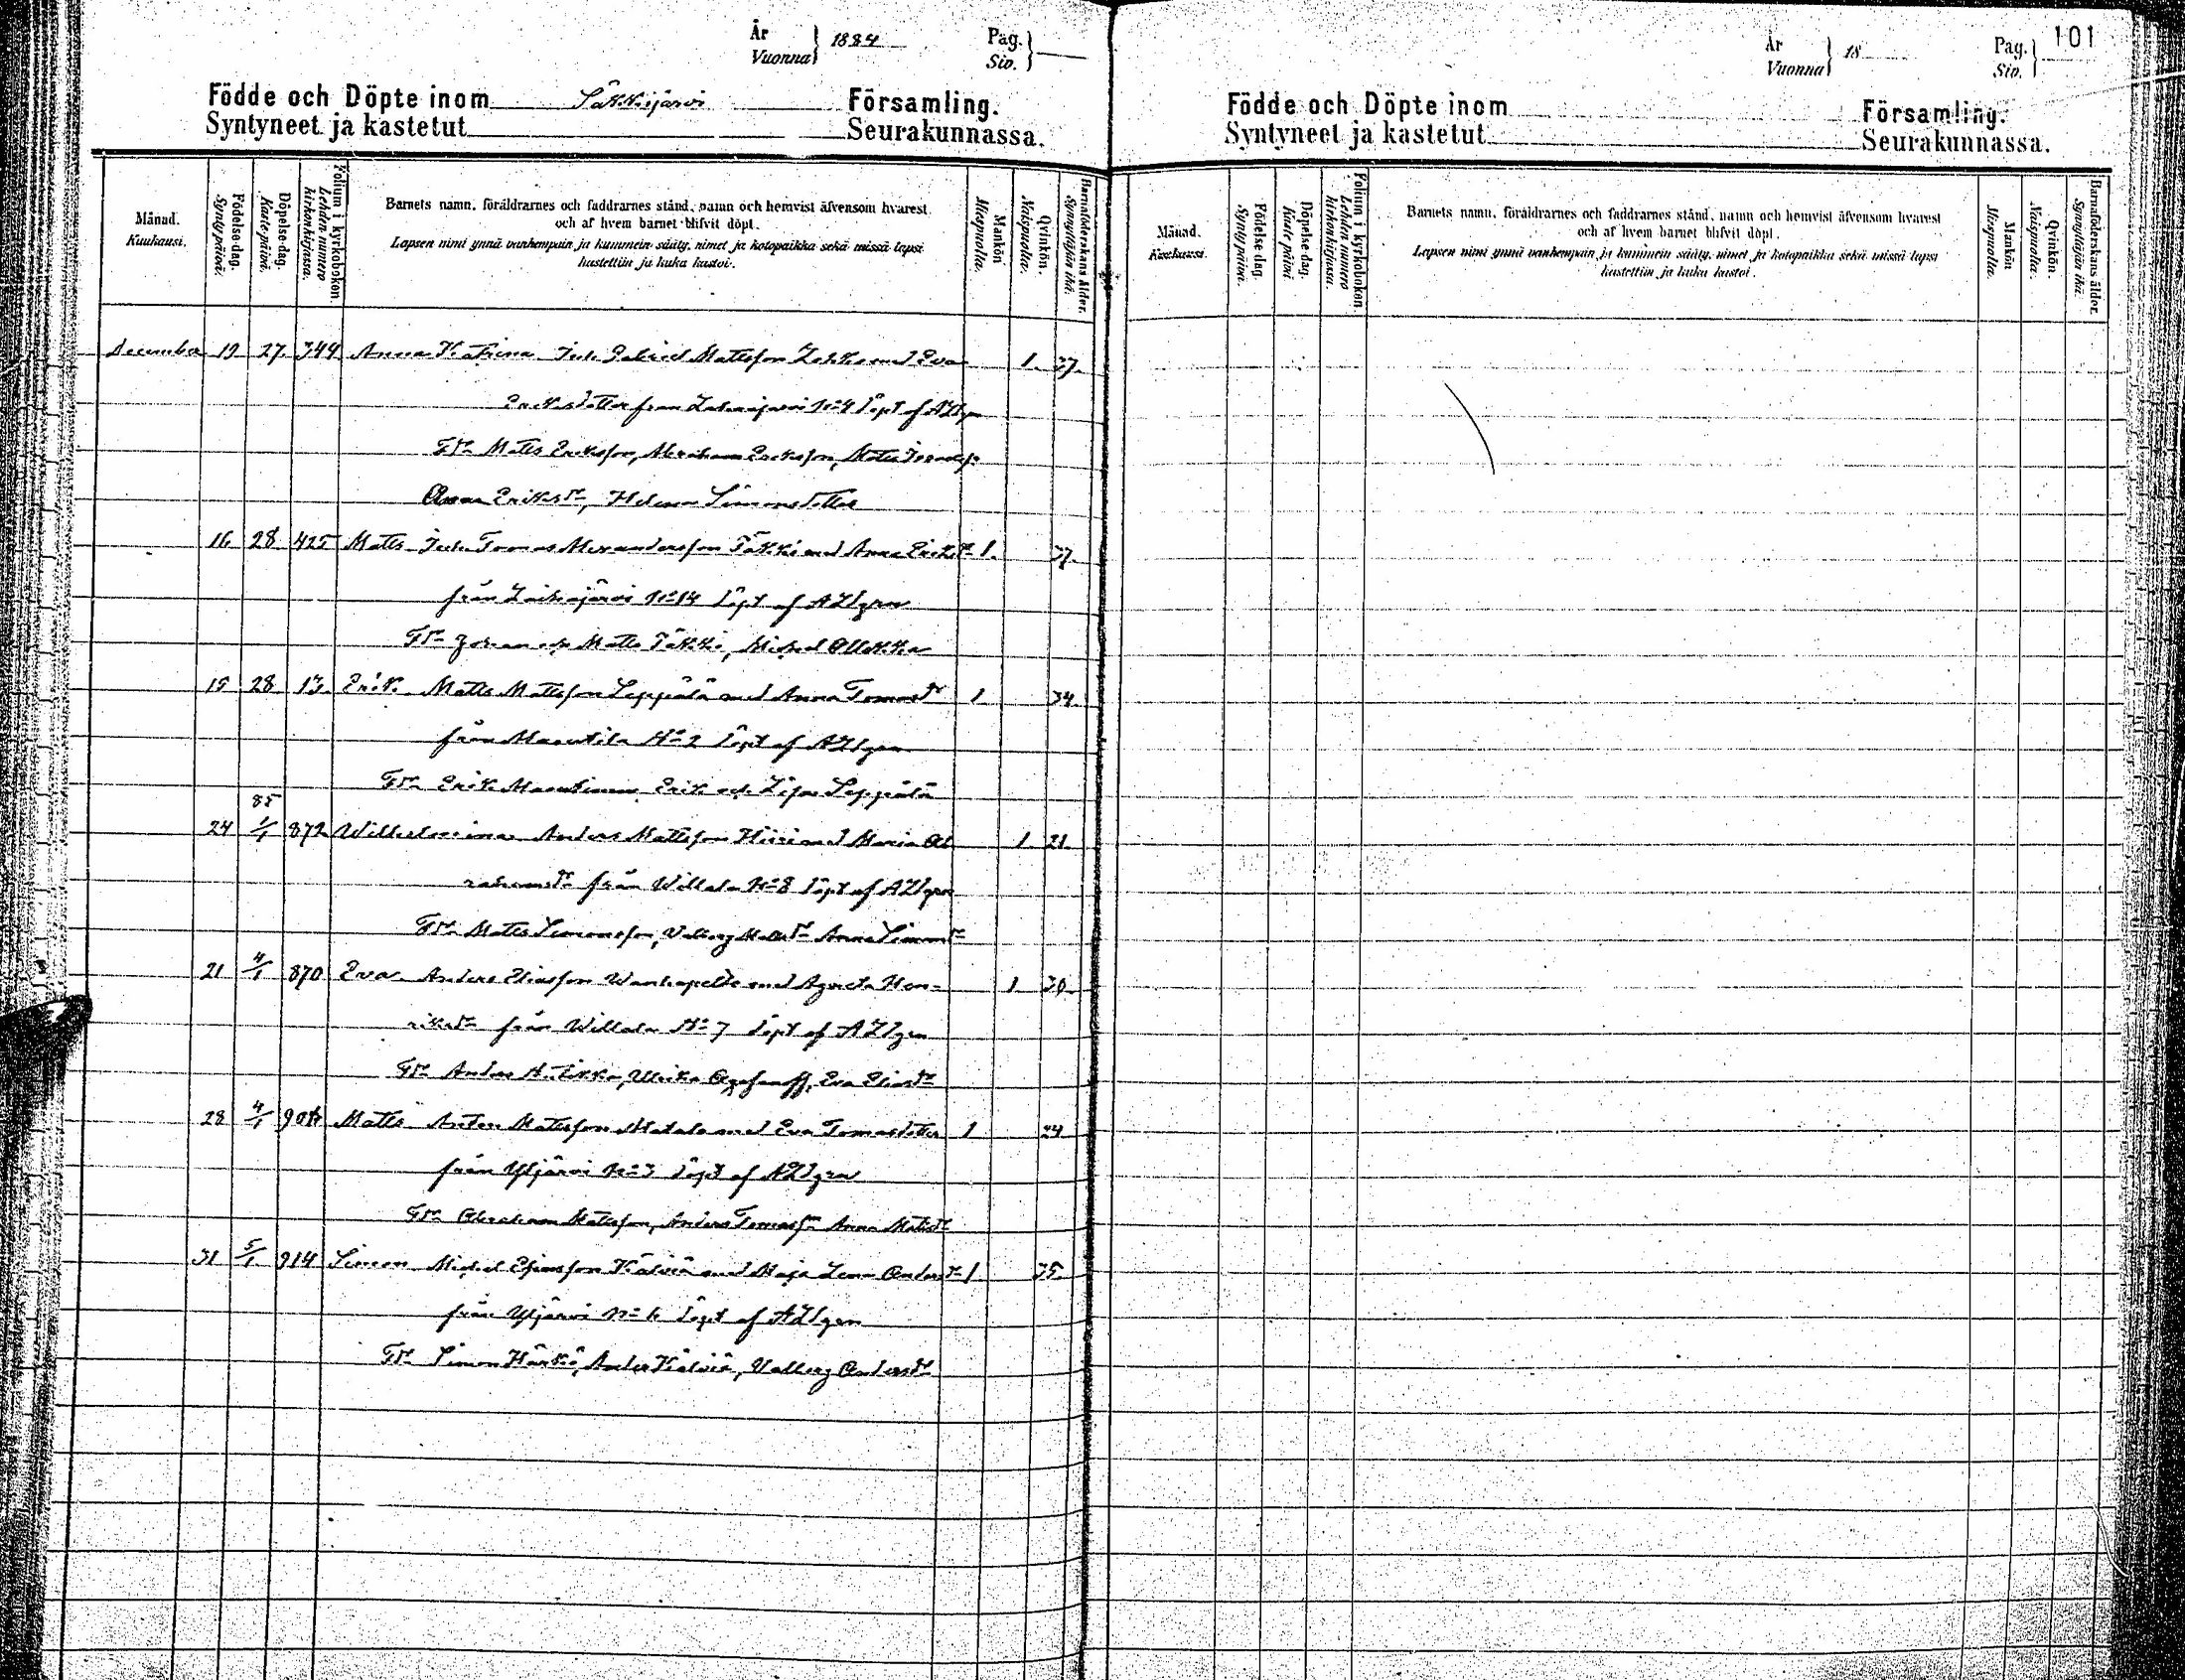 År 1884 Pag.
Vuonna Siv.
Födde och Döpte inom Säkkijärvi Församling.
Syntyneet ja kastetut Seurakunnassa.
Månad. Kuukausi.
Födelse-dag. Synty päivä.
Döpelse-dag. Kaste-päivä.
Folium i kyrkoboken. Lehden numero kirkonkirjassa.
Barnets namn, föräldrarnes och faddrarnes stånd, namn och hemvist äfvensom hvarest
och af hvem barnet blifvit döpt.
Lapsen nimi ynnä vanhempain ja kummein sääty, nimet ja kotopaikka sekä missä lapsi
kastettiin ja kuka kastoi.
Mankön Miespuolia.
Qvinkön. Naispuolia.
Barnaföderskans ålder. Synnyttäjän ikä.
December 19 27 344 Anna Katrina Inh. Gabriel Mattsson med Eva 1. 37.
Eriksdotter från N:o 4 döpt af
Fdr Matts Eriksson, Abraham Eriksson, Matts
Anna Eriksdr, Helena Simonsdotter
16 28 425 Matts Inh. Tomas Alexandersson Täkki med Anna Eriksdr 1. 37.
från N:o 14 döpt af
Fdr Johan och Matts Täkki, Michel Ollikka
15 28 13 Erik Matts Mattsson Leppälä med Anna Tomasdr 1 34.
från Muurutila N:o 2 döpt af
Fdr Erik Erik och Lisa Leppälä
85
24 1/1 872 Wilhelmina Anders Mattsson Hiiri med Maria Ab 1 21.
rahamsdr från Willala N:o 8 döpt af
Fdr Matts Simonsson, Valborg Mattsdr Anna Simonsdr
21 4/1 870 Eva Anders Eliasson Wanhapelto med Agneta Hen- 1 30.
riksdr från Willala N:o 7 döpt af
Fdr Anders Ulrika Eva Eliasdr
28 4/1 904 Matts Anders Mattsson Matala med Eva Tomasdotter 1 24
från Yljärvi N:o 3 döpt af
Fdr Abraham Mattsson, Anders Tomasson Anna Mattsdr
31 5/1 914 Simon Michel Kälviä med Maja Lena Andersdr 1 35.
från Yljärvi N:o 6 döpt af
Fdr Simon Härkö, Anders Kälviä, Valborg Andersdr
101
År 18 Pag.
Vuonna Siv.
Födde och Döpte inom Församling.
Syntyneet ja kastetut Seurakunnassa.
Månad. Kuukausi.
Födelse-dag. Synty päivä.
Döpelse-dag. Kaste päivä.
Folium i kyrkoboken. Lehden numero kirkonkirjassa.
Barnets namn, föräldrarnes och faddrarnes stånd, namn och hemvist äfvensom hvarest
och af hvem barnet blifvit döpt.
Lapsen nimi ynnä vanhempain ja kummein sääty, nimet ja kotopaikka sekä missä lapsi
kastettiin ja kuka kastoi.
Mankön Miespuolia.
Qvinkön. Naispuolia.
Barnaföderskans ålder. Synnyttäjän ikä.